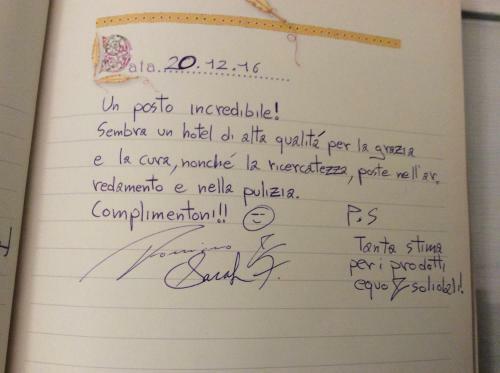 Data 20.12.16
Un posto incredibile!
Sembra un hotel di alta qualitá per la grazia
e la cura, nonché la ricercatezza, poste nell'ar-
redamento e nella pulizia.
Complimentoni!!
P.S
Tanta stima
per i prodotti
equo solidali!
Sarah F.